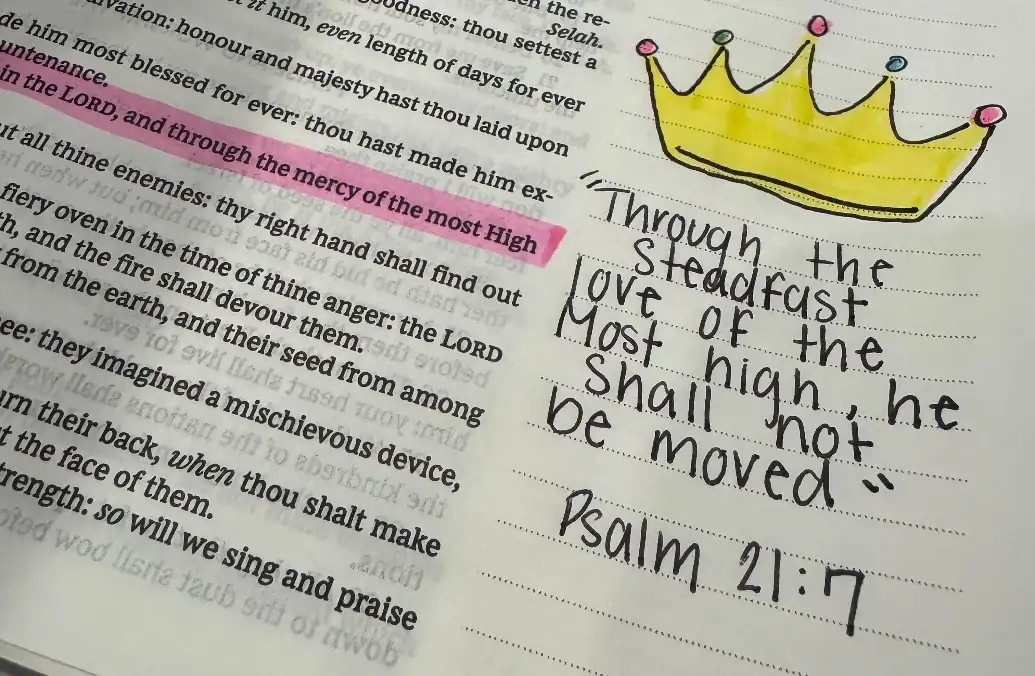 the re-
Selah.
odness: thou settest a
it him, even length of days for ever
lvation: honour and majesty hast thou laid upon
de him most blessed for ever: thou hast made him ex-
untenance.
in the LORD, and through the mercy of the most High
ut all thine enemies: thy right hand shall find out
fiery oven in the time of thine anger: the LORD
h, and the fire shall devour them.
from the earth, and their seed from among
ee: they imagined a mischievous device,
urn their back, when thou shalt make
t the face of them.
trength: so will we sing and praise
"Through the
Steadfast
love of the
Most high, he
Shall not
be moved"
Psalm 21:7